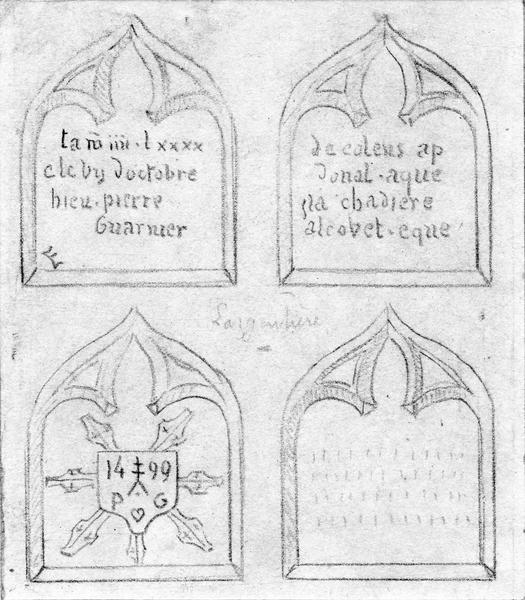 lan m iiii · lxxxx
e lo bij doctobre
hieu · pierre
Guarnier
de colens ap
donat · aque
sta chadiere
alcovet · eque
Largentière
14 99
P G